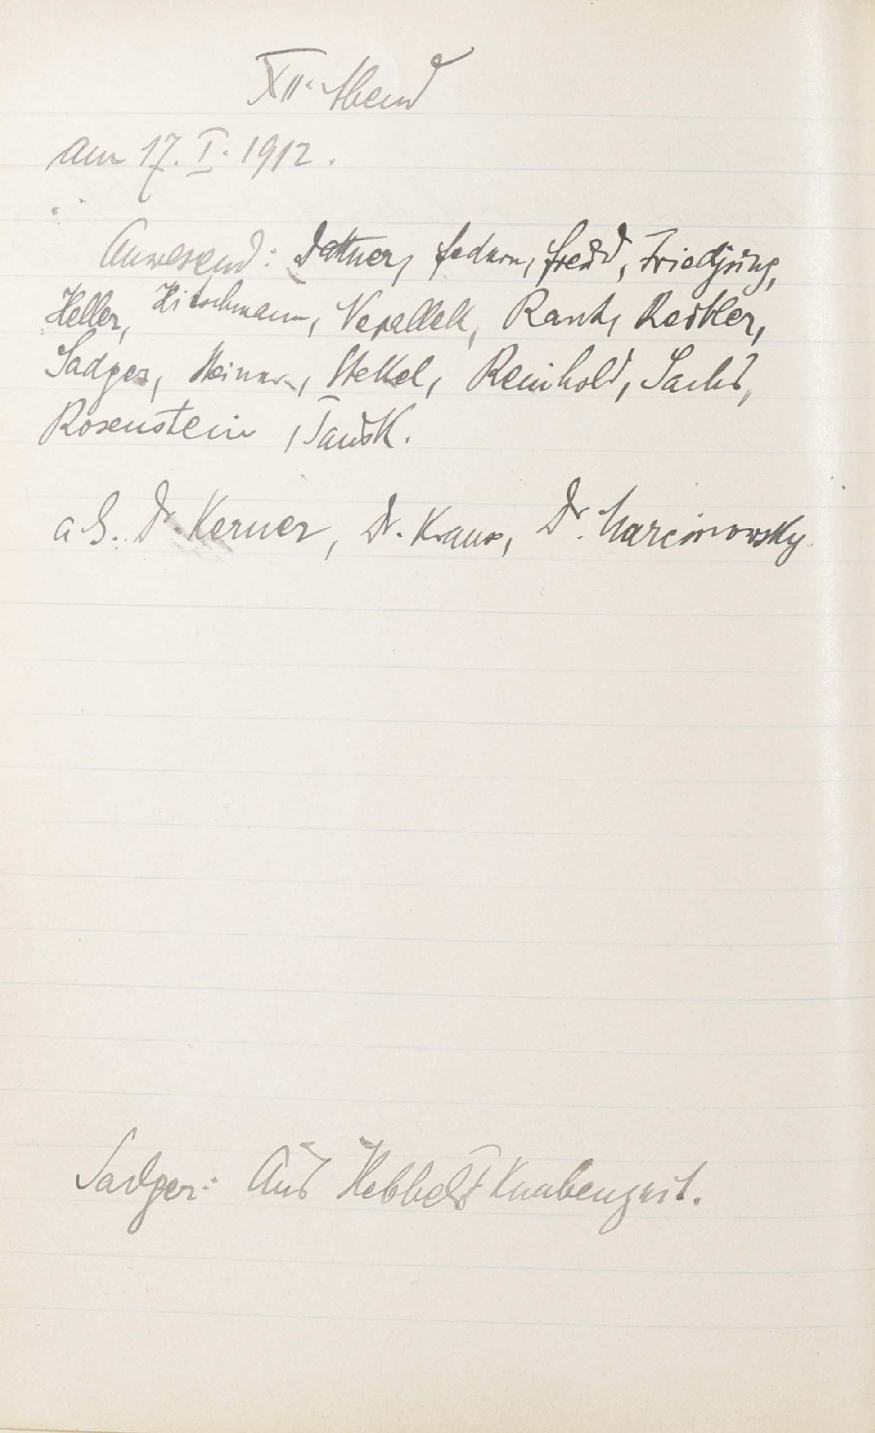 XII. Abend
am 17. I. 1912.
Anwesend: Dattner, Federn, Freud, Friedjung,
Heller, Hitschmann, Nepallek, Rank, Reitler,
Sadger, Steiner, Stekel, Reinhold, Sachs,
Rosenstein, Tausk.
a G. Dr. Kerner, Dr. Kraus, Dr. Marcinowsky
Sadger: Aus Hebbels Knabenzeit.